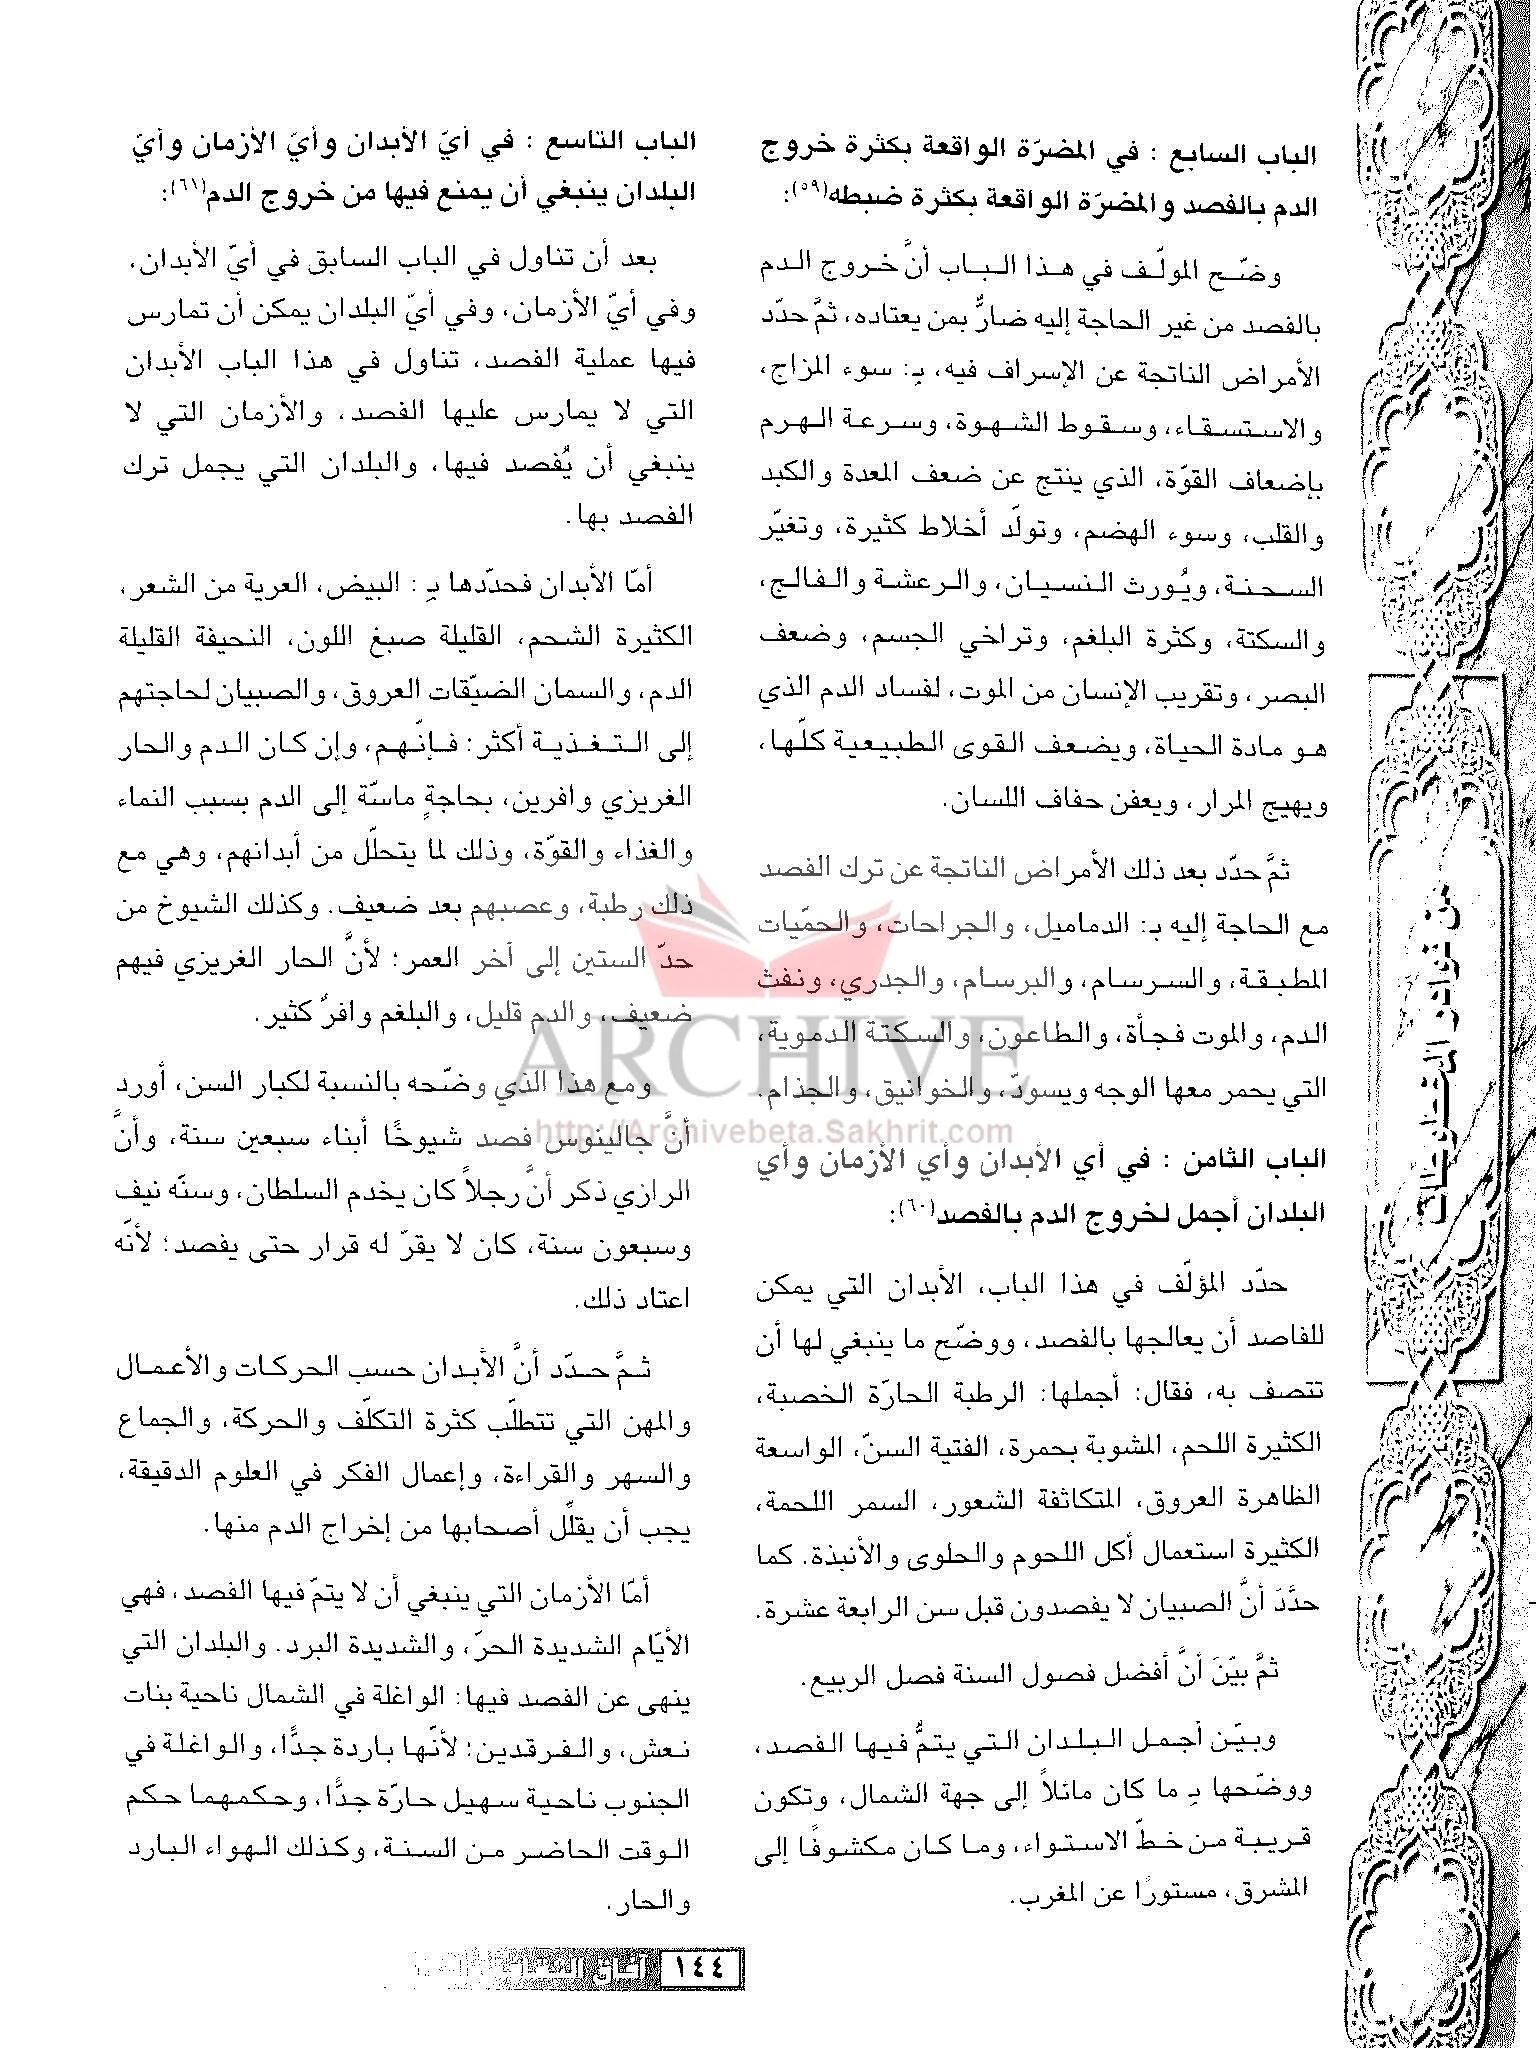 الباب السابع : في المضرّة الواقعة بكثرة خروج
الدم بالفصد والمضرّة الواقعة بكثرة ضبطه(٥٩):
وضّح المولّف في هذا الباب أنَّ خروج الدم
بالفصد من غير الحاجة إليه ضارٌّ بمن يعتاده، ثمَّ حدّد
الأمراض الناتجة عن الإسراف فيه، بـ: سوء المزاج،
والاستسقاء، وسقوط الشهوة، وسرعة الهرم
بإضعاف القوّة، الذي ينتج عن ضعف المعدة والكبد
والقلب، وسوء الهضم، وتولّد أخلاط كثيرة، وتغيّر
السحنة، ويُورث النسيان، والرعشة والفالج،
والسكتة، وكثرة البلغم، وتراخي الجسم، وضعف
البصر، وتقريب الإنسان من الموت، لفساد الدم الذي
هو مادة الحياة، ويضعف القوى الطبيعية كلّها،
ويهيج المرار، ويعفن حفاف اللسان.
ثمَّ حدّد بعد ذلك الأمراض الناتجة عن ترك الفصد
مع الحاجة إليه بـ: الدماميل، والجراحات، والحمّيات
المطبقة، والسرسام، والبرسام، والجدري، ونفث
الدم، والموت فجأة، والطاعون، والسكتة الدموية،
التي يحمر معها الوجه ويسودّ، والخوانيق، والجذام.
الباب الثامن : في أي الأبدان وأي الأزمان وأي
البلدان أجمل لخروج الدم بالفصد(٦٠):
حدّد المؤلّف في هذا الباب، الأبدان التي يمكن
للفاصد أن يعالجها بالفصد، ووضّح ما ينبغي لها أن
تتصف به، فقال: أجملها: الرطبة الحارّة الخصبة،
الكثيرة اللحم، المشوبة بحمرة، الفتية السنّ، الواسعة
الظاهرة العروق، المتكاثفة الشعور، السمر اللحمة،
الكثيرة استعمال أكل اللحوم والحلوى والأنبذة. كما
حدَّدَ أنَّ الصبيان لا يفصدون قبل سن الرابعة عشرة.
ثمَّ بيّنَ أنَّ أفضل فصول السنة فصل الربيع.
وبيّن أجمل البلدان التي يتمُّ فيها الفصد،
ووضّحها بـِ ما كان مائلاً إلى جهة الشمال، وتكون
قريبة من خطّ الاستواء، وما كان مكشوفًا إلى
المشرق، مستورًا عن المغرب.
الباب التاسع : في أيّ الأبدان وأيّ الأزمان وأيّ
البلدان ينبغي أن يمنع فيها من خروج الدم(٦١):
بعد أن تناول في الباب السابق في أيّ الأبدان،
وفي أيّ الأزمان، وفي أيّ البلدان يمكن أن تمارس
فيها عملية الفصد، تناول في هذا الباب الأبدان
التي لا يمارس عليها الفصد، والأزمان التي لا
ينبغي أن يُفصد فيها، والبلدان التي يجمل ترك
الفصد بها.
أمّا الأبدان فحدّدها بـِ: البيض، العرية من الشعر،
الكثيرة الشحم، القليلة صبغ اللون، النحيفة القليلة
الدم، والسمان الضيّقات العروق، والصبيان لحاجتهم
إلى التغذية أكثر؛ فإنّهم، وإن كان الدم والحار
الغريزي وافرين، بحاجةٍ ماسّة إلى الدم بسبب النماء
والغذاء والقوّة، وذلك لما يتحلّل من أبدانهم، وهي مع
ذلك رطبة، وعصبهم بعد ضعيف. وكذلك الشيوخ من
حدّ الستين إلى أخر العمر؛ لأنَّ الحار الغريزي فيهم
ضعيف، والدم قليل، والبلغم وافرٌ كثير.
ومع هذا الذي وضّحه بالنسبة لكبار السن، أورد
أنَّ جالينوس فصد شيوخًا أبناء سبعين سنة، وأنَّ
الرازي ذكر أنَّ رجلاً كان يخدم السلطان، وسنّه نيف
وسبعون سنة، كان لا يقرّ له قرار حتى يفصد؛ لأنّه
اعتاد ذلك.
ثمَّ حدّد أنَّ الأبدان حسب الحركات والأعمال
والمهن التي تتطلّب كثرة التكلّف والحركة، والجماع
والسهر والقراءة، وإعمال الفكر في العلوم الدقيقة،
يجب أن يقلّل أصحابها من إخراج الدم منها.
أمّا الأزمان التي ينبغي أن لا يتمّ فيها الفصد، فهي
الأيّام الشديدة الحرّ، والشديدة البرد. والبلدان التي
ينهى عن الفصد فيها: الواغلة في الشمال ناحية بنات
نعش، والفرقدين؛ لأنّها باردة جدًّا، والواغلة في
الجنوب ناحية سهيل حارّة جدًّا، وحكمهما حكم
الوقت الحاضر من السنة، وكذلك الهواء البارد
والحار.
من نوادر المخطوطات
ARCHIVE
http://Archivebeta.Sakhrit.com
١٤٤
آفاق الثقافة